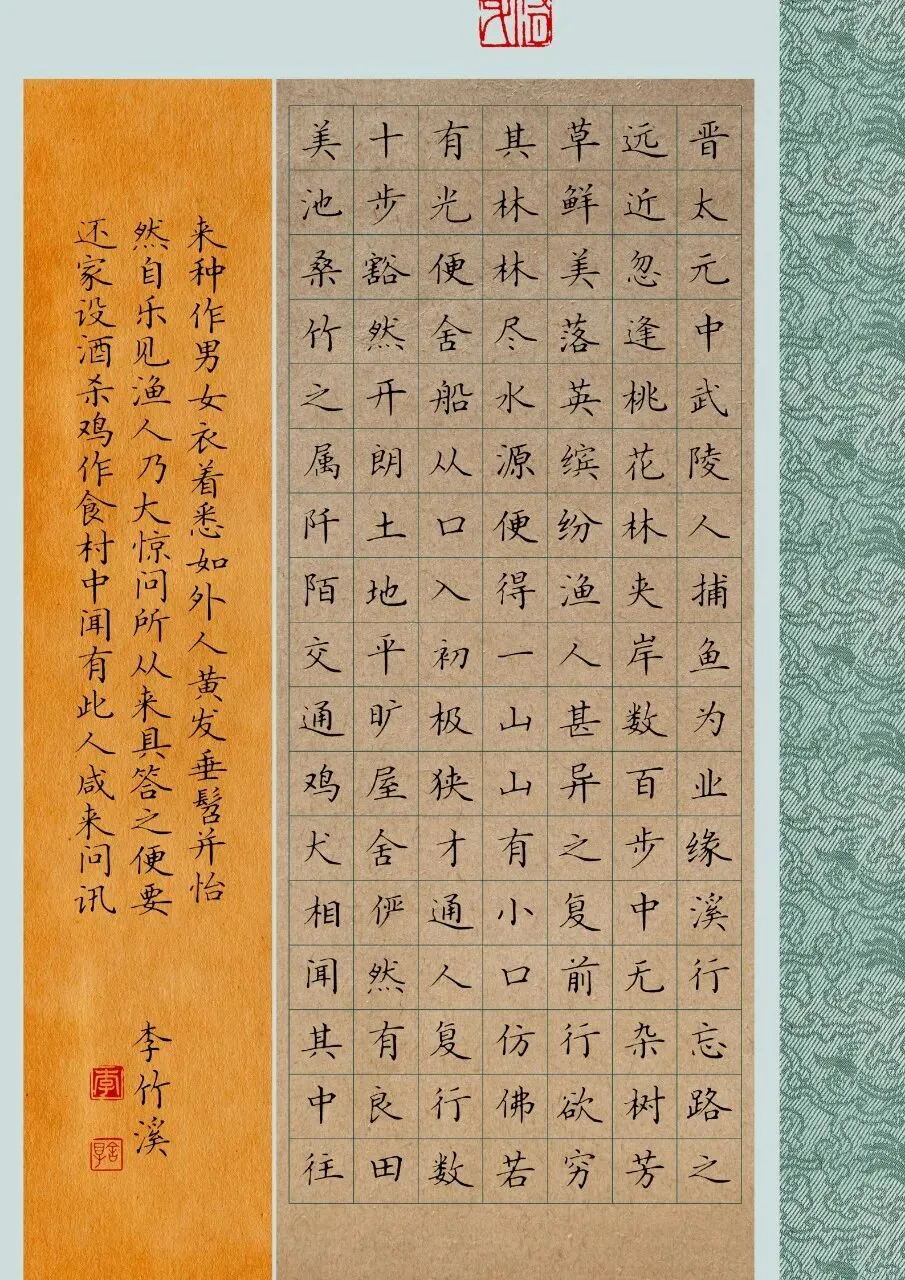 晋太元中武陵人捕鱼为业缘溪行忘路之
远近忽逢桃花林夹岸数百步中无杂树芳
草鲜美落英缤纷渔人甚异之复前行欲穷
其林林尽水源便得一山山有小口仿佛若
有光便舍船从口入初极狭才通人复行数
十步豁然开朗土地平旷屋舍俨然有良田
美池桑竹之属阡陌交通鸡犬相闻其中往
来种作男女衣着悉如外人黄发垂髫并怡
然自乐见渔人乃大惊问所从来具答之便要
还家设酒杀鸡作食村中闻有此人咸来问讯
李竹溪
李